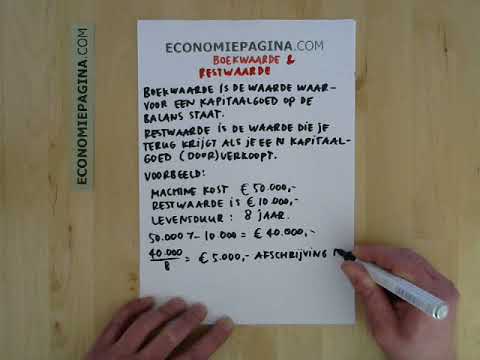 ECONOMIEPAGINA.COM
ECONOMIEPAGINA.COM
BOEKWAARDE &
RESTWAARDE
BOEKWAARDE IS DE WAARDE WAAR-
VOOR EEN KAPITAALGOED OP DE
BALANS STAAT.
RESTWAARDE IS DE WAARDE DIE JE
TERUG KRIJGT ALS JE EEN KAPITAAL-
GOED (DOOR)VERKOOPT.
VOORBEELD:
MACHINE KOST € 50.000,-
RESTWAARDE IS € 10.000,-
LEVENSDUUR: 8 JAAR.
50.000 -/- 10.000 = € 40.000,-
40.000
/ 8 = € 5.000,- AFSCHRIJVING